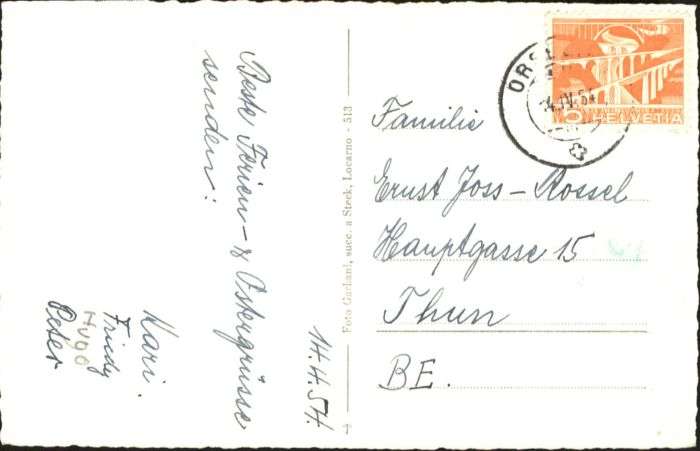 Beste Ferien- & Ostergrüsse
senden:
Kari.
Fridy
Hugo
Peter
14.4.54.
Foto Garbani, succ. a Steck, Locarno - 513
Familie
Ernst Joss-Rossel
Hauptgasse 15
Thun
BE.
14.IV.54
HELVETIA